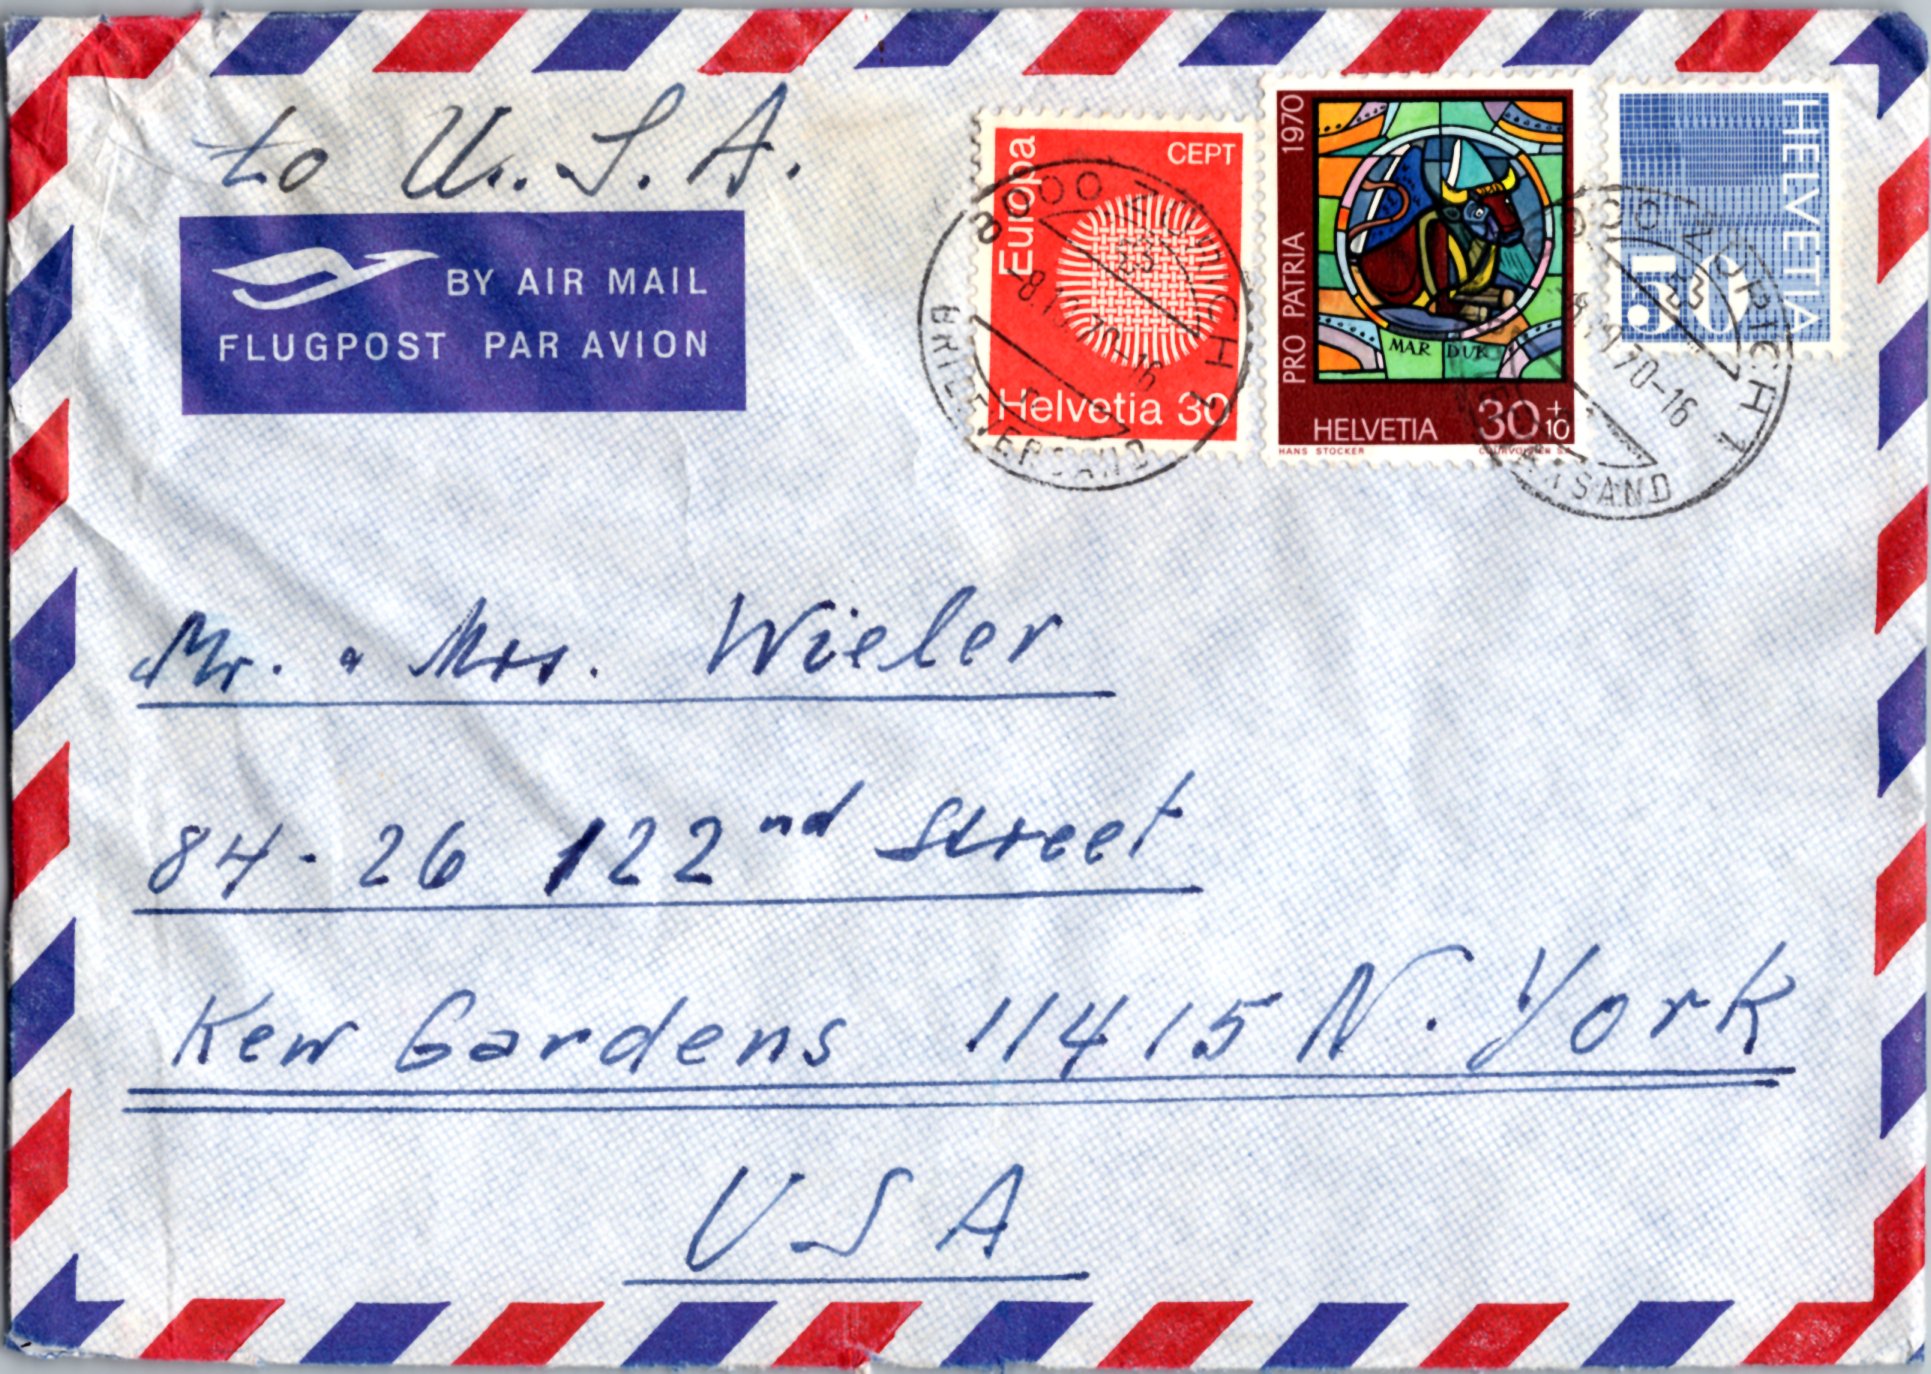 to U.S.A.
BY AIR MAIL
FLUGPOST PAR AVION
Europa
CEPT
Helvetia 30
PRO PATRIA 1970
MAR DUK
HELVETIA 30+10
HANS STOCKER COURVOISIER S.A.
HELVETIA
50
8000 ZÜRICH 1
23
-8.10.70-16
BRIEFVERSAND
8000 ZÜRICH 1
23
70-16
VERSAND
Mr. & Mrs. Wieler
84-26 122nd Street
Kew Gardens 11415 N. York
USA